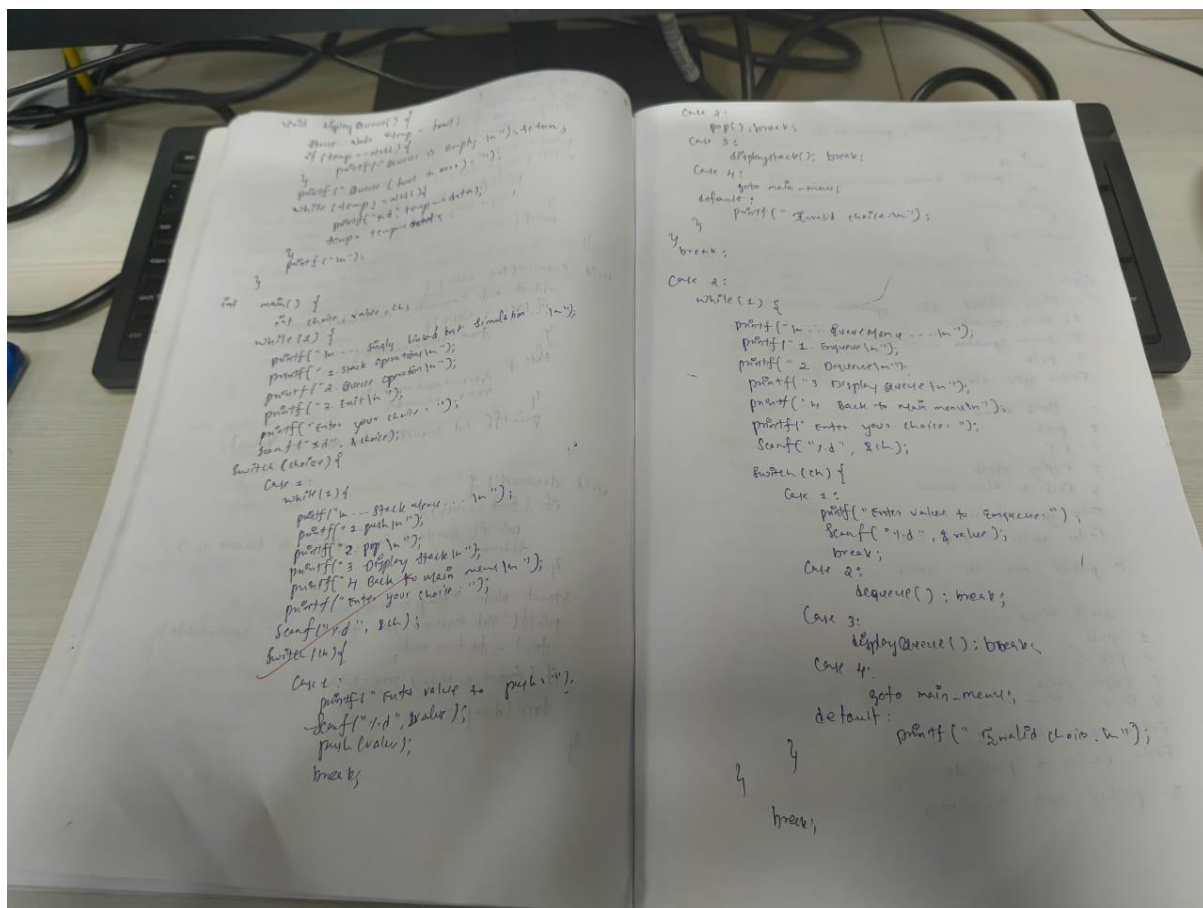 void displayQueue() {
struct node *temp = front;
if (temp == NULL) {
printf("Queue is empty \n"); return;
}
printf("Queue (front to rear): ");
while (temp != NULL) {
printf("%d", temp->data);
temp = temp->
}
printf("\n");
}
int main() {
int choice, value, ch;
while(1) {
printf("\n... Singly Linked list Simulation ...\n");
printf("1. Stack Operations\n");
printf("2. Queue Operation\n");
printf("3. Exit\n");
printf("Enter your choice: ");
scanf("%d", &choice);
switch (choice) {
Case 1:
while(1) {
printf("\n ... Stack Menu ... \n");
printf("1. push\n");
printf("2. pop \n");
printf("3. Display Stack\n");
printf("4 Back to main menu\n");
printf("Enter your choice: ");
Scanf("%d", &ch);
Switch (ch) {
Case 1:
printf("Enter value to push: ");
Scanf("%d", &value);
push(value);
break;
Case 2:
pop(); break;
Case 3:
displayStack(); break;
Case 4:
goto main_menu;
default:
printf(" Invalid choice \n");
}
}
break;
Case 2:
while(1) {
printf("\n ... Queue Menu ... \n");
printf("1. Enqueue\n");
printf("2. Dequeue\n")
printf("3 Display Queue\n");
printf("4 Back to Main menu\n");
printf(" Enter your choice: ");
Scanf("%d", &ch);
Switch (ch) {
Case 1:
printf("Enter value to Enqueue:");
Scanf("%d", &value);
break;
Case 2:
dequeue(); break;
Case 3:
displayQueue(); break;
Case 4:
goto main_menu;
default:
printf(" Invalid choic. \n");
}
}
break;